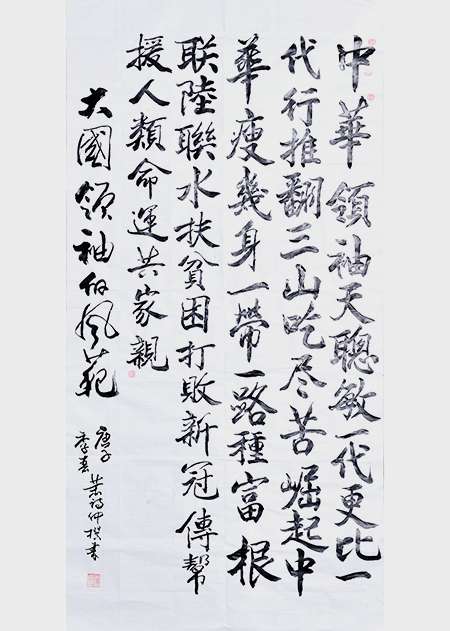 中華領袖天聰敏一代更比一
代行推翻三山吃尽苦崛起中
華瘦幾身一帶一路種富根
联陸聯水扶貧困打敗新冠傳幫
援人類命運共家親
大國領袖的風範
庚子
季春
撰書